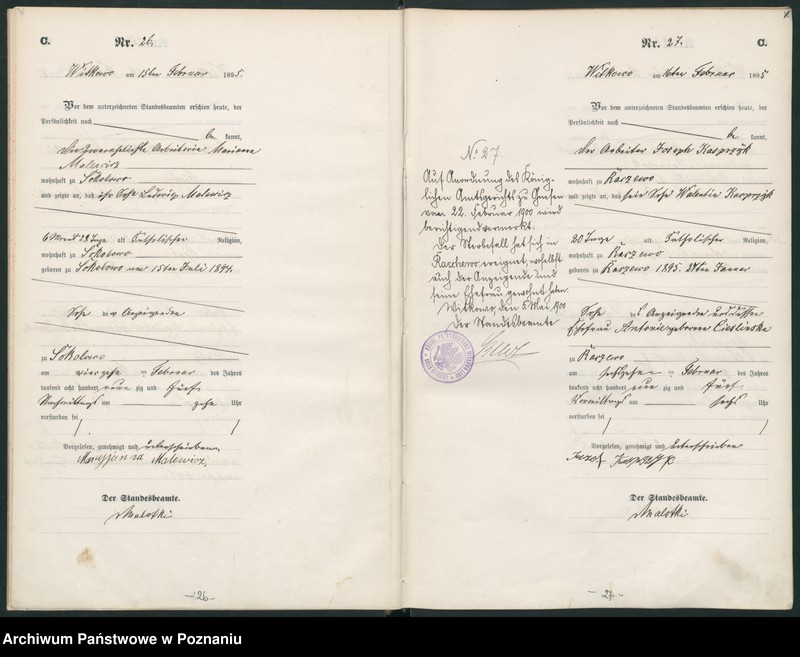 C. Nr. 26.
Witkowo am 15ten Februar 1895.
Vor dem unterzeichneten Standesbeamten erschien heute, der
Persönlichkeit nach
be kannt,
die unverehelichte Arbeiterin Marianna
Malewicz
wohnhaft zu Sokolowo
und zeigte an, daß ihr Sohn Ludwig Malewicz
6 Monat 28 Tage alt katholischer Religion,
wohnhaft zu Sokolowo
geboren zu Sokolowo am 15ten Juli 1894.
Sohn der Anzeigenden
zu Sokolowo
am vierzehn ten Februar des Jahres
tausend acht hundert neun zig und fünf
Nachmittags um zehn Uhr
verstorben sei
Vorgelesen, genehmigt und unterschrieben
Maryjanna Malewicz
Der Standesbeamte.
Malotki
-26-
Nr. 27. C.
Witkowo am 16ten Februar 1895
Vor dem unterzeichneten Standesbeamten erschien heute, der
Persönlichkeit nach
be kannt,
der Arbeiter Joseph Kasprzyk
wohnhaft zu Karzewo
und zeigte an, daß sein Sohn Valentin Kasprzyk
20 Tage alt katholischer Religion,
wohnhaft zu Karzewo
geboren zu Karzewo 1895. 27ten Januar
Sohn des Anzeigenden und dessen
Ehefrau Antonie geborene Cieslinska
zu Karzewo
am sechzehn ten Februar des Jahres
tausend acht hundert neun zig und fünf
Vormittags um sechs Uhr
verstorben sei
Vorgelesen, genehmigt und unterschrieben
Jozef Kasprzyk
Der Standesbeamte.
Malotki
No 27
Auf Anordnung des König-
lichen Amtsgerichts zu Gnesen
vom 22. Februar 1900 wird
berichtigend vermerkt:
Der Sterbefall hat sich in
ereignet, woselbst
auch der Anzeigende und
seine Ehefrau gewohnt haben.
Witkowo, den 5. Mai 1900
Der Standesbeamte
-27-
Archiwum Państwowe w Poznaniu